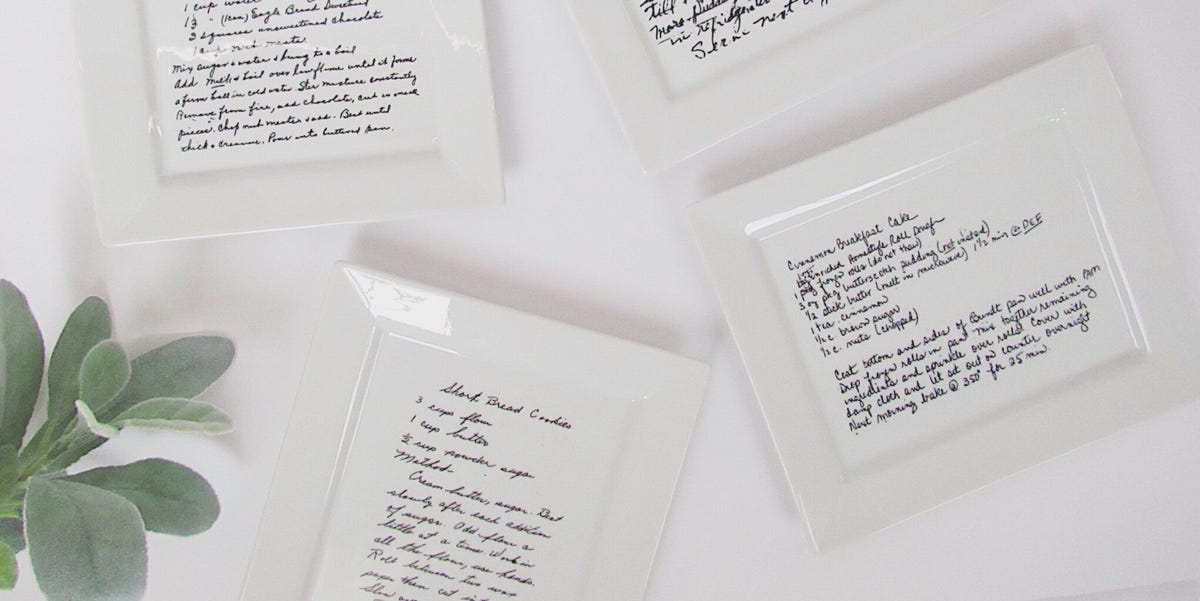 1 cup water
1/3 " (can) Eagle Brand Sweetened
3 squares unsweetened chocolate
1 cup nut meats.
Mix sugar & water & bring to a boil
add milk & boil over low flame until it forms
a firm ball in cold water. Stir mixture constantly
Remove from fire, add chocolate, cut in small
pieces. Chop nut meats & add. Beat until
thick & creamy. Pour into buttered pan.
till
more pudding
in refrigerator
Serve next
Short Bread Cookies
3 cup flour
1 cup butter
1/2 cup powder sugar
Method-
Cream butter, sugar. Beat
slowly after each addition
of sugar. Add flour a
little at a time. Work in
all the flour, use hands.
Roll between two wax
paper then cut in
Cinnamon Breakfast Cake
Homestyle Roll Dough
1 pkg frozen rolls (do not thaw)
3 oz pkg butterscotch pudding (not instant)
1/2 stick butter (melt in microwave) 1 1/2 min @ DEF
1 tea. cinnamon
1/2 c. brown sugar
1/2 c. nuts (chopped)
Coat bottom and sides of Bundt pan well with PAM
Drop frozen rolls in pan. Mix together remaining
ingredients and sprinkle over rolls. Cover with
damp cloth and let set out on counter overnight
Next morning bake @ 350° for 25 min.